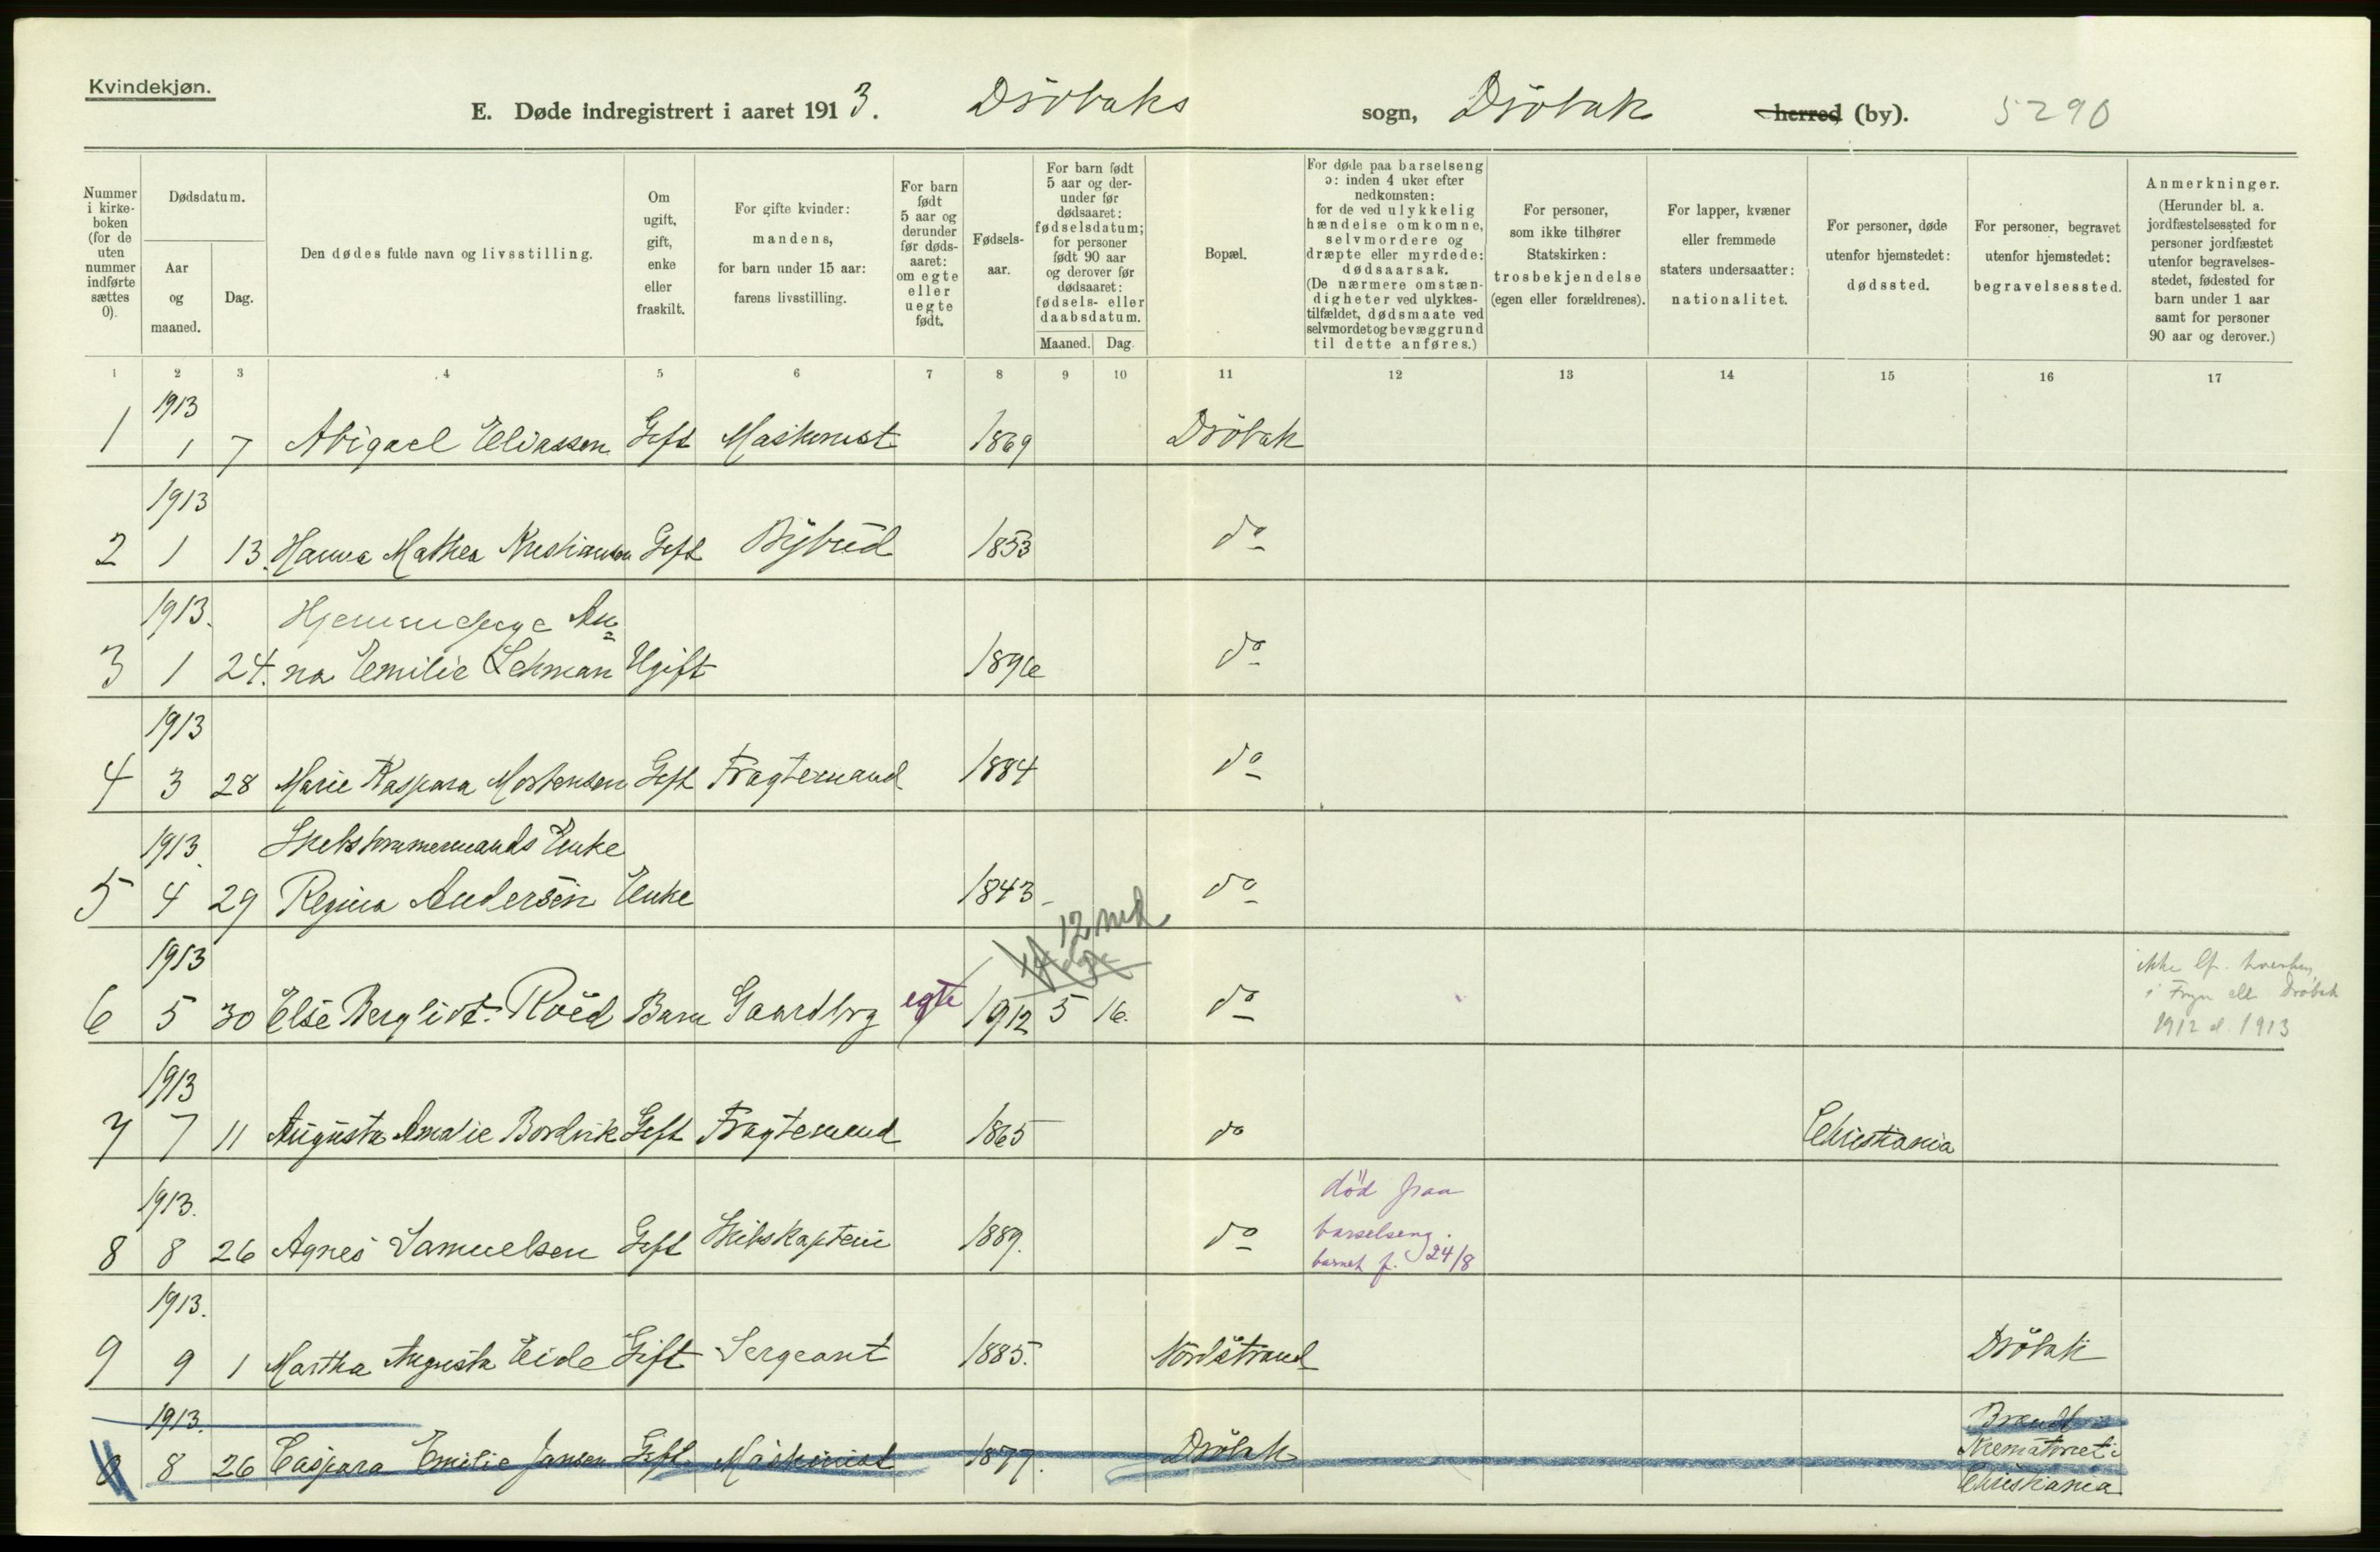 Kvindekjøn.
E. Døde indregistrert i aaret 1913. Dröbaks sogn, Dröbak herred (by). 5290
Nummer i kirke- boken (for de uten nummer indførte sættes 0).
Dødsdatum.
Aar og maaned.
Dag.
Den dødes fulde navn og livsstilling.
Om ugift, gift, enke eller fraskilt.
For gifte kvinder: mandens, for barn under 15 aar: farens livsstilling.
For barn født 5 aar og derunder før døds- aaret: om egte eller uegte født.
Fødsels- aar.
For barn født 5 aar og der- under før dødsaaret: fødselsdatum; for personer født 90 aar og derover før dødsaaret: fødsels- eller daabsdatum.
Maaned. Dag.
Bopæl.
For døde paa barselseng ɔ: inden 4 uker efter nedkomsten: for de ved ulykkelig hændelse omkomne, selvmordere og dræpte eller myrdede: dødsaarsak. (De nærmere omstæn- digheter ved ulykkes- tilfældet, dødsmaate ved selvmordet og bevæggrund til dette anføres.)
For personer, som ikke tilhører Statskirken: trosbekjendelse (egen eller forældrenes).
For lapper, kvæner eller fremmede staters undersaatter: nationalitet.
For personer, døde utenfor hjemstedet: dødssted.
For personer, begravet utenfor hjemstedet: begravelsessted.
Anmerkninger. (Herunder bl. a. jordfæstelsessted for personer jordfæstet utenfor begravelses- stedet, fødested for barn under 1 aar samt for personer 90 aar og derover.)
1 2 3 4 5 6 7 8 9 10 11 12 13 14 15 16 17
1913
1 1 7 Abigael Eliassen Gift Maskinist 1869 Dröbak
1913
2 1 13. Hanna Mathea Kristiansen Gift Bybud 1853 do
1913. Hjemmeværende An=
3 1 24. na Emilie Lehman Ugift 1896 do
1913
4 3 28 Marie Kaspara Mortensen Gift Fragtemand 1884 do
1913. Skibstømmermands Enke
5 4 29 Regina Andersen Enke 1843 do
12 md
1913
6 5 30 Else Bergliot Röed Barn Gaardbrg egte 1912 5 16. do
ikke
i Frogn ell. Dröbak
1912 el. 1913
1913
7 7 11 Augusta Amalie Bordvik Gift Fragtemand 1865 do Christiania
1913.
8 8 26 Agnes Samuelsen Gift Skibskaptein 1889. do
död paa
barselseng.
barnet f. 24/8
1913.
9 9 1 Martha Augusta Eide Gift Sergeant 1885. Nordstrand Dröbak
1913.
0 8 26 Caspara Emilie Jansen Gift Maskinist 1877. Dröbak
Brændt
Krematoriet i
Christiania